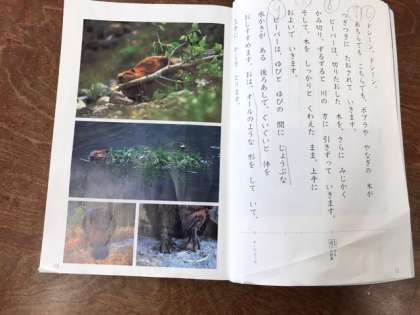 ドシーン、ドシーン。
あちらでも こちらでも、ポプラや やなぎの 木が
つぎつぎに たおされて いきます。
ビーバーは、切りたおした 木を、さらに みじかく
かみ切り、ずるずると 川の 方に 引きずって いきます。
そして、木を しっかりと くわえた まま、上手に
およいで いきます。
ビーバーは、ゆびと ゆびの 間に じょうぶな
水かきが ある 後ろあしで、ぐいぐいと 体を
おしすすめます。おは、オールのような 形を して いて、